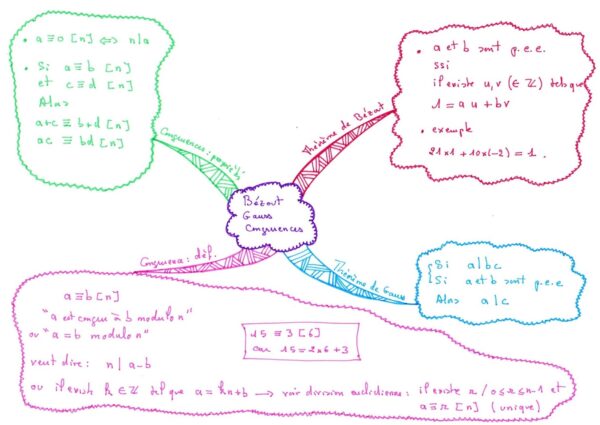 • a ≡ 0 [n] ⟺ n|a
• Si a ≡ b [n]
et c ≡ d [n]
Alors
a+c ≡ b+d [n]
ac ≡ bd [n]
Congruences : propriétés
• a et b sont p.e.e.
ssi
il existe u, v (∈ ℤ) tels que
1 = a u + b v
• exemple
21×1 + 10×(-2) = 1.
Théorème de Bézout
Bézout
Gauss
Congruences
Congruence : déf.
Théorème de Gauss
Si a|bc
Si a et b sont p.e.e
Alors a|c
a ≡ b [n]
"a est congru à b modulo n"
ou "a = b modulo n"
veut dire : n | a-b
ou il existe k ∈ ℤ tel que a = kn+b → voir division euclidienne : il existe r / 0≤r≤n-1 et
a ≡ r [n] (unique)
15 ≡ 3 [6]
car 15 = 2×6 + 3